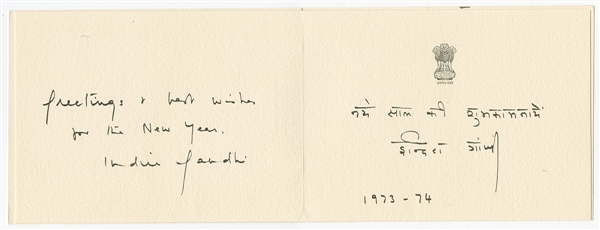 Greetings & best wishes
for the New Year.
Indira Gandhi
नये साल की शुभकामनायें
इन्दिरा गांधी
1973-74